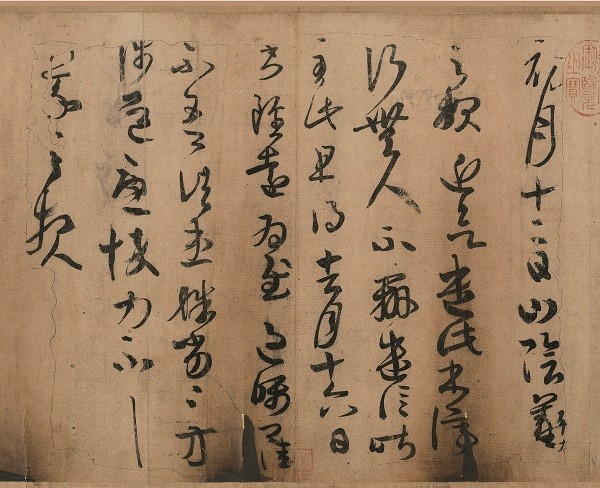 初月十二日山陰羲
之報近欲遣此書停
行無人不辦遣信昨
至此且得去月十六日
書雖遠為慰過囑卿佳
不吾諸患殊劣〻方
涉道憂悴力不具
羲之報